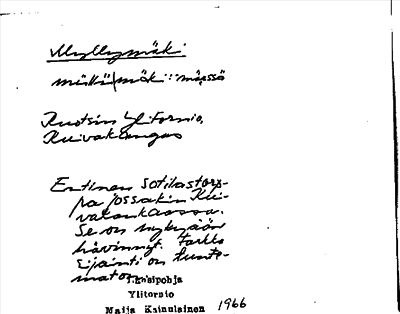 Myllymäki
müllü|mäk :: mäessä
Ruotsin Ylitornio,
Kuivakangas
Entinen sotilastorp-
pa jossakin Kui-
vakankaassa.
Se on nykyään
hävinnyt. Tarkka
sijainti on tunte-
maton.
Länsipohja
Ylitornio
Maija Kainulainen 1966